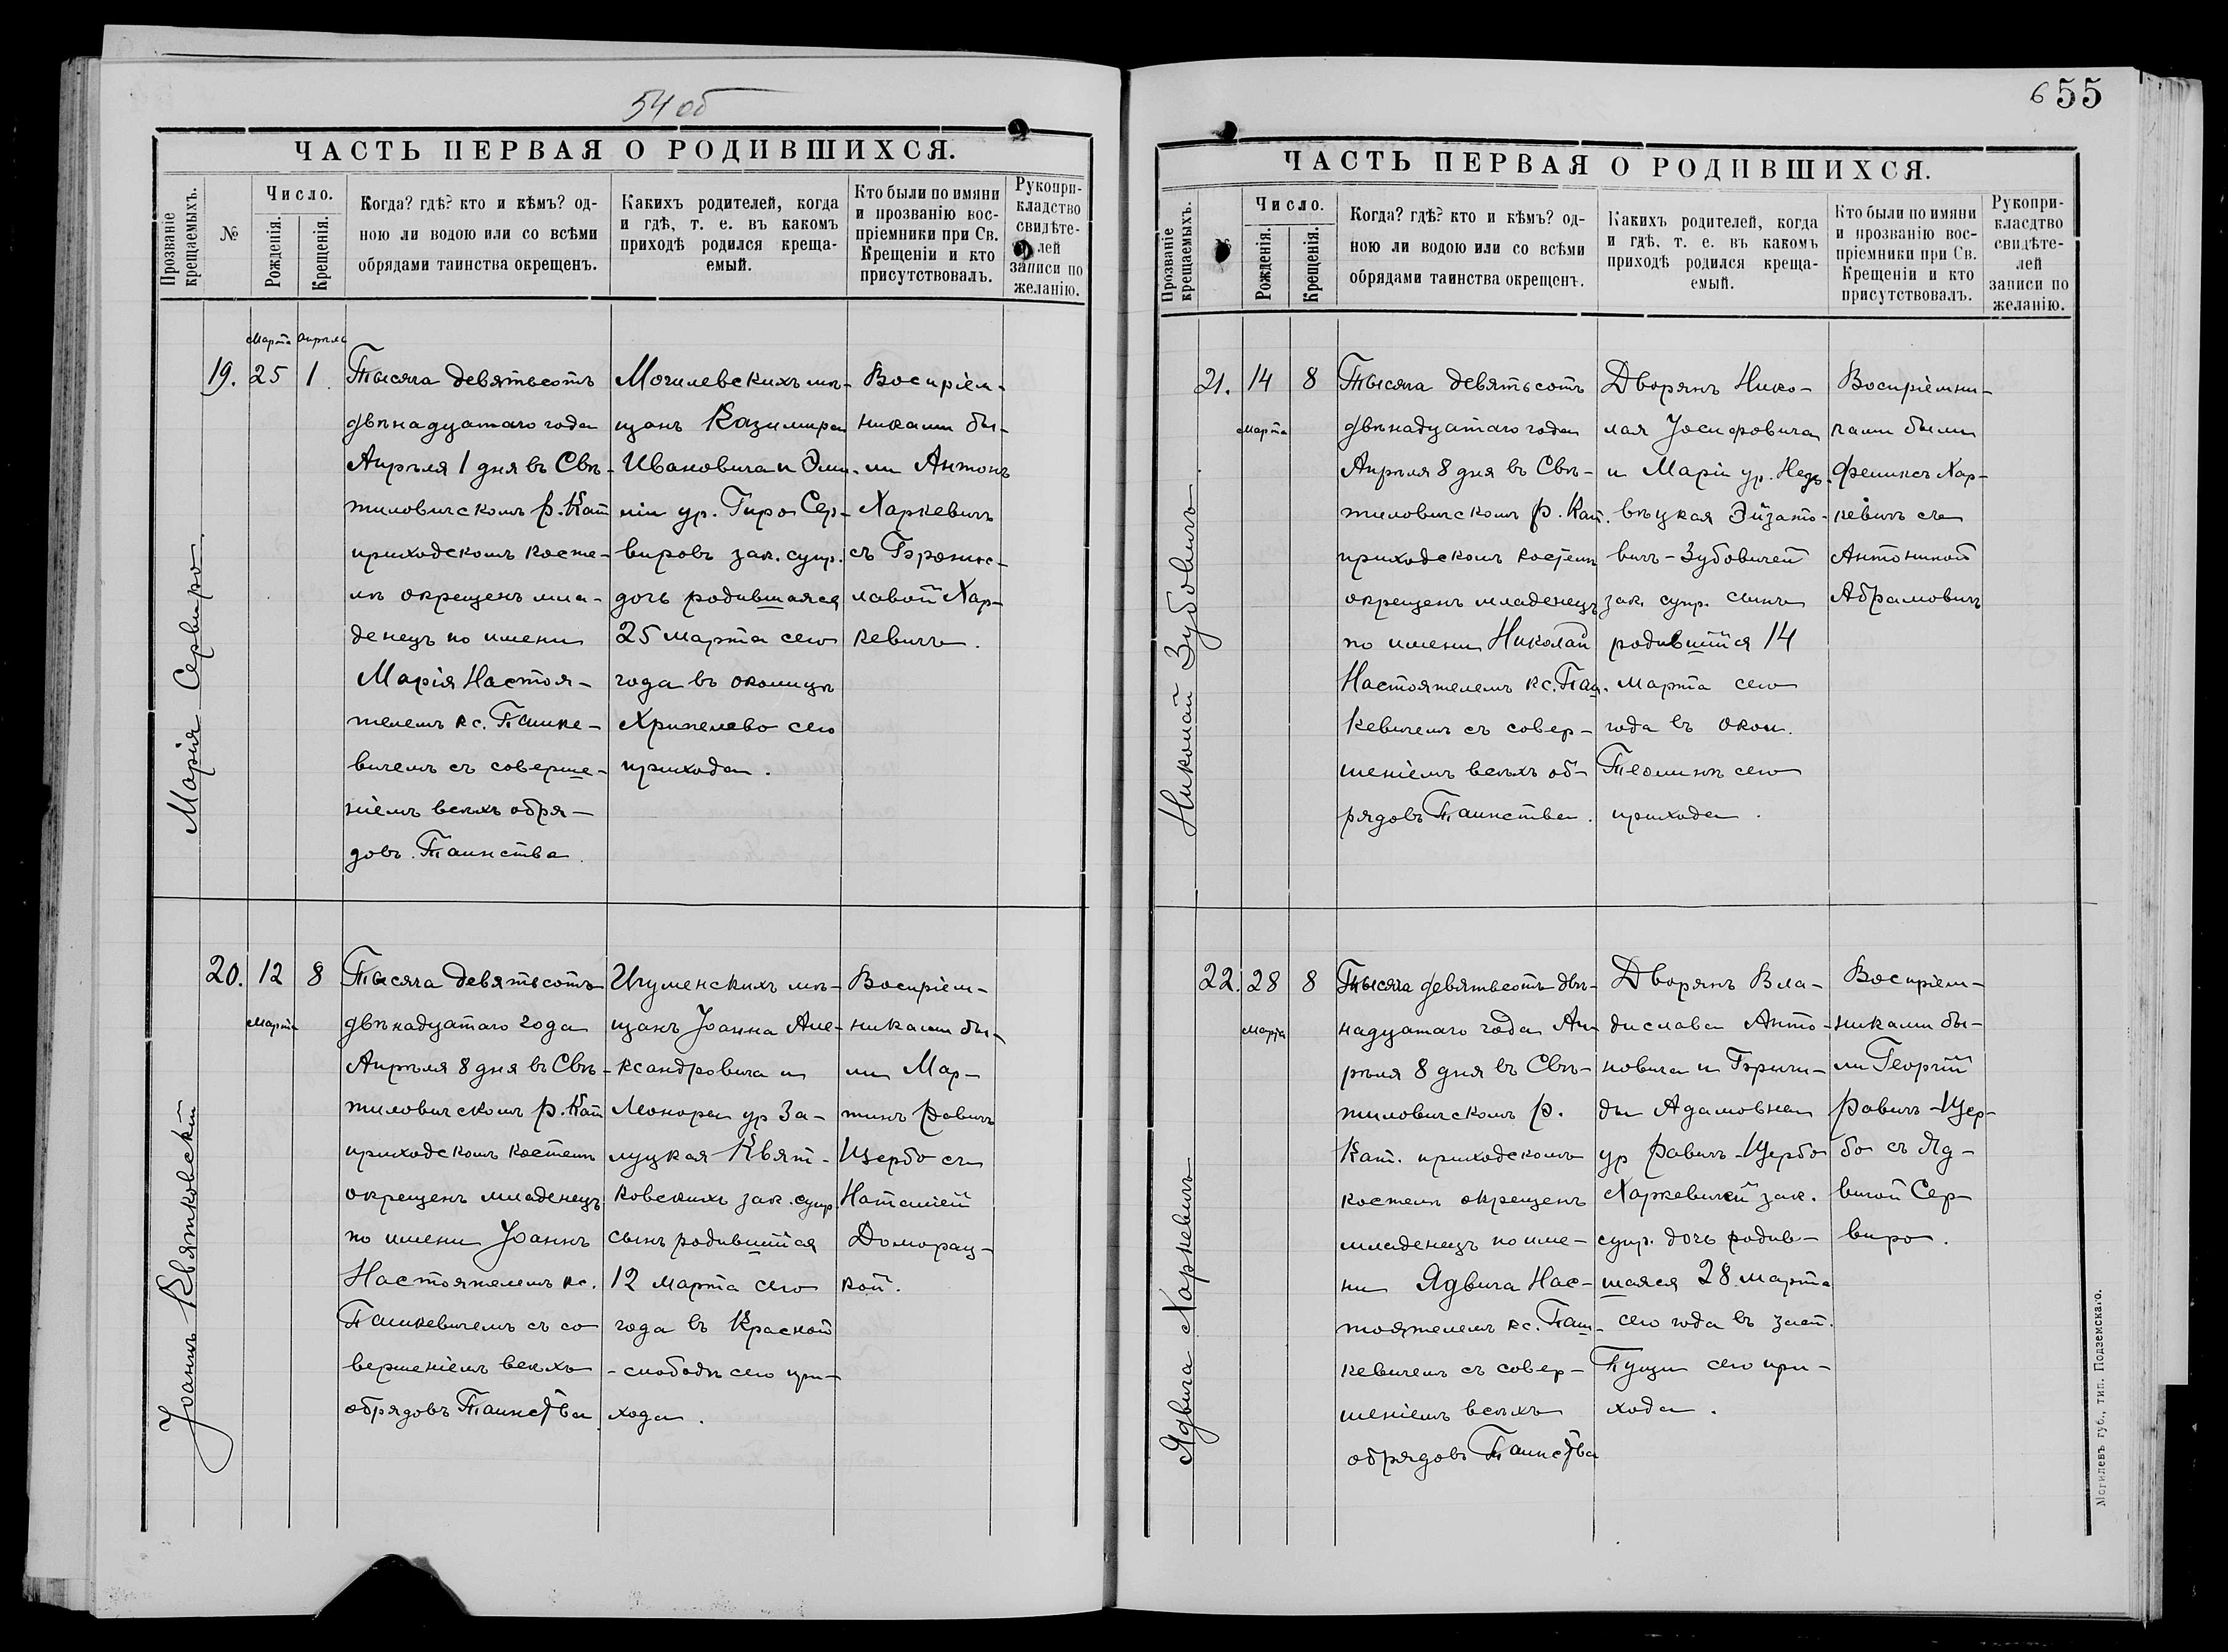 54 об
ЧАСТЬ ПЕРВАЯ О РОДИВШИХСЯ.
Прозваніе крещаемыхъ.
№
Число.
Рожденія.
Крещенія.
Когда? гдѣ? кто и кѣмъ? од-
ною ли водою или со всѣми
обрядами таинства окрещенъ.
Какихъ родителей, когда
и гдѣ, т. е. въ какомъ
приходѣ родился креща-
емый.
Кто были по имяни
и прозванію вос-
пріемники при Св.
Крещеніи и кто
присутствовалъ.
Рукопри-
кладство
свидѣте-
лей
записи по
желанію.
Марія Сервиро.
19.
Марта
25
Апрѣля
1.
Тысяча девятьсотъ
двѣнадцатаго года
Апрѣля 1 дня въ Свѣ-
тиловичскомъ р. Кат
приходскомъ косте-
лѣ окрещенъ мла-
денецъ по имени
Марія Настоя-
телемъ кс. Пашке-
вичемъ съ соверше-
ніемъ всѣхъ обря-
довъ Таинства.
Могилевскихъ мѣ-
щанъ Казимира
Ивановича и Эми-
ліи ур. Гиро Сер-
вировъ зак. супр.
дочь родившаяся
25 марта сего
года въ околицѣ
Хрипелево сего
прихода.
Воспріем-
никами бы-
ли Антонъ
Харкевичъ
съ Бронис-
лавой Хар-
кевичъ.
Іоаннъ Квятковскій
20.
12
Марта
8
Тысяча девятьсотъ
двѣнадцатаго года
Апрѣля 8 дня въ Свѣ-
тиловичскомъ р. Кат
приходскомъ костелѣ
окрещенъ младенецъ
по имени Іоаннъ
Настоятелемъ кс.
Пашкевичемъ съ со
вершеніемъ всѣхъ
обрядовъ Таинства
Игуменскихъ мѣ-
щанъ Іоанна Але-
ксандровича и
Леоноры ур За-
луцкая Квят-
ковскихъ зак. супр.
сынъ родившійся
12 марта сего
года въ Красной
-слободѣ сего при-
хода.
Воспріем-
никами бы-
ли Мар-
тинъ Равичъ
Щербо съ
Наталіей
Доморац-
кой.
655
ЧАСТЬ ПЕРВАЯ О РОДИВШИХСЯ.
Прозваніе крещаемыхъ.
Число.
Рожденія.
Крещенія.
Когда? гдѣ? кто и кѣмъ? од-
ною ли водою или со всѣми
обрядами таинства окрещенъ.
Какихъ родителей, когда
и гдѣ, т. е. въ какомъ
приходѣ родился креща-
емый.
Кто были по имяни
и прозванію вос-
пріемники при Св.
Крещеніи и кто
присутствовалъ.
Рукопри-
класдтво
свидѣте-
лей
записи по
желанію.
Николай Зубовичъ.
21.
14
Марта
8
Тысяча девятьсотъ
двѣнадцатаго года
Апрѣля 8 дня въ Свѣ-
тиловичскомъ р. Кат.
приходскомъ костелѣ
окрещенъ младенецъ
по имени Николай
Настоятелемъ кс. Паш-
кевичемъ съ совер-
шеніемъ всѣхъ об-
рядовъ Таинства.
Дворянъ Нико-
лая Іосифовича
и Маріи ур. Недз-
вѣцкая Эйзато-
вичъ-Зубовичей
зак. супр. сынъ
родившійся 14
Марта сего
года въ окол.
сего
прихода.
Воспріемни-
ками были
Феликсъ Хар-
кевичъ съ
Антониной
Абрамовичъ
Ядвига Харкевичъ
22.
28
Марта
8
Тысяча девятьсотъ двѣ-
надцатаго года Ап-
рѣля 8 дня въ Свѣ-
тиловичскомъ р.
Кат. приходскомъ
костелѣ окрещенъ
младенецъ по име-
ни Ядвига Нас-
тоятелемъ кс. Паш-
кевичемъ съ совер-
шеніемъ всѣхъ
обрядовъ Таинства
Дворянъ Вла-
дислава Анто-
новича и Бриги-
ды Адамовна
ур Равичъ-Щербо
Харкевичей зак.
супр. дочь родив-
шаяся 28 марта
сего года въ заст.
Пущи сего при-
хода.
Воспріем-
никами бы-
ли Георгій
Равичъ-Щер-
бо съ Яд-
вигой Сер-
виро.
Могилевъ губ., тип. Подземскаго.